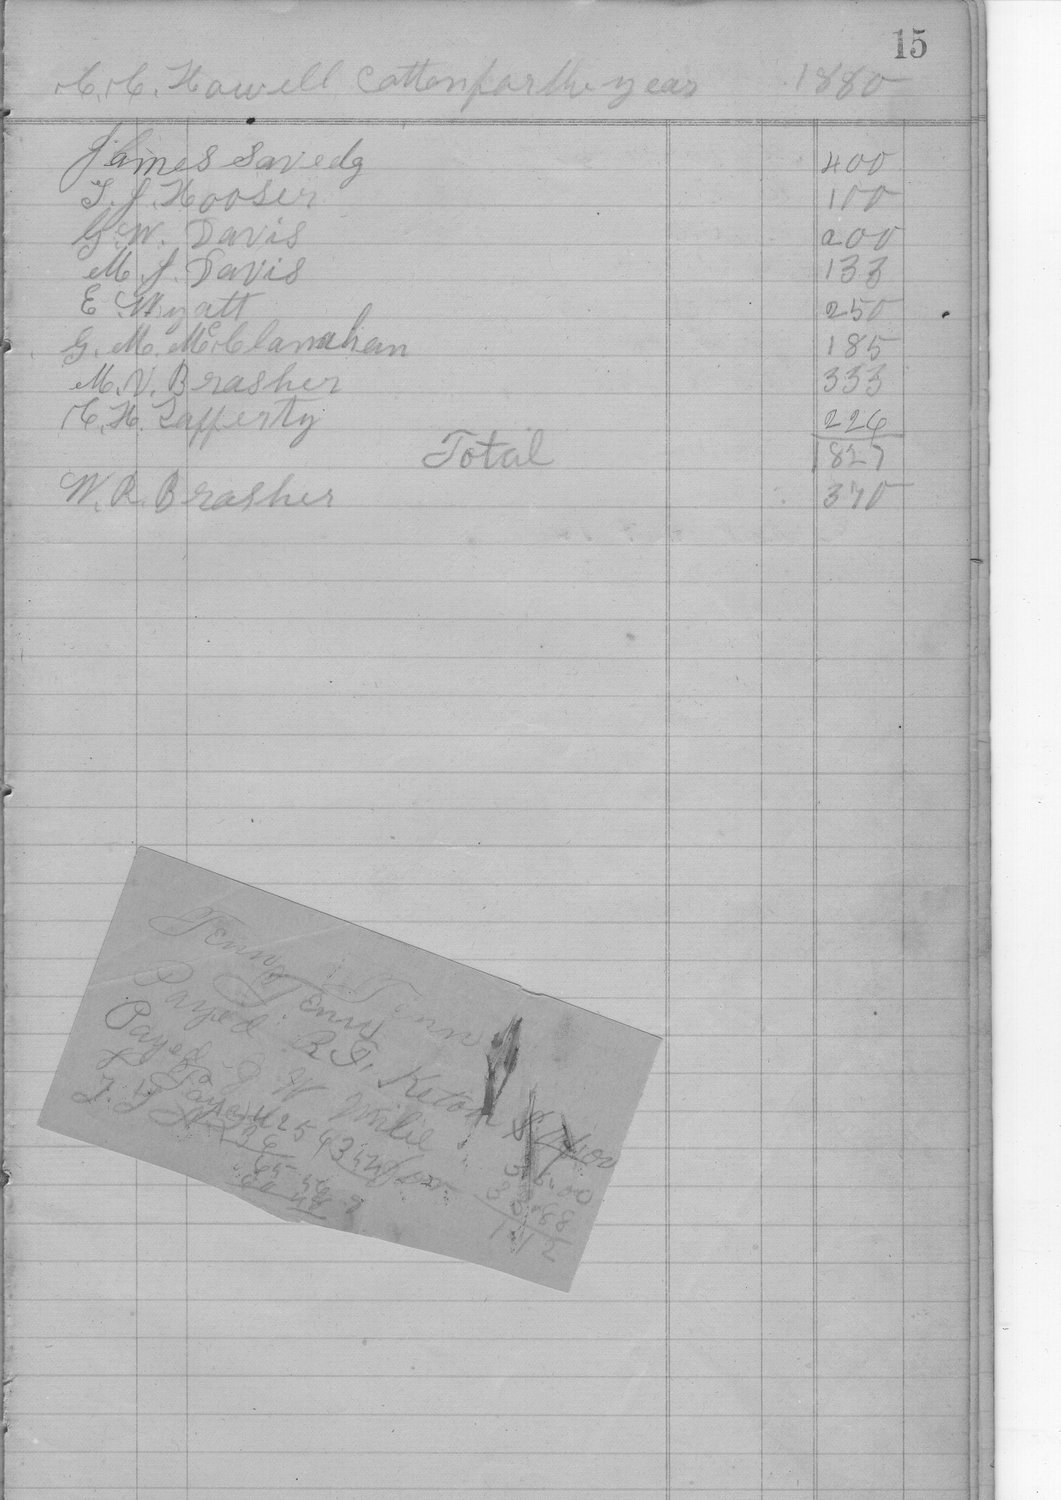 15
C. C. Howell Cotton for the year 1880
James Savedg 400
T. J. Hooser 100
G. W. Davis 200
M. J. Davis 133
E Wyatt 250
G. M. McClanahan 185
M. V. Brasher 333
C. H. Lafferty 226
Total 1827
W. R. Brasher 370
Tenn
Tenn
Payed B T. Keton $
Payed J W Wilie 36.00